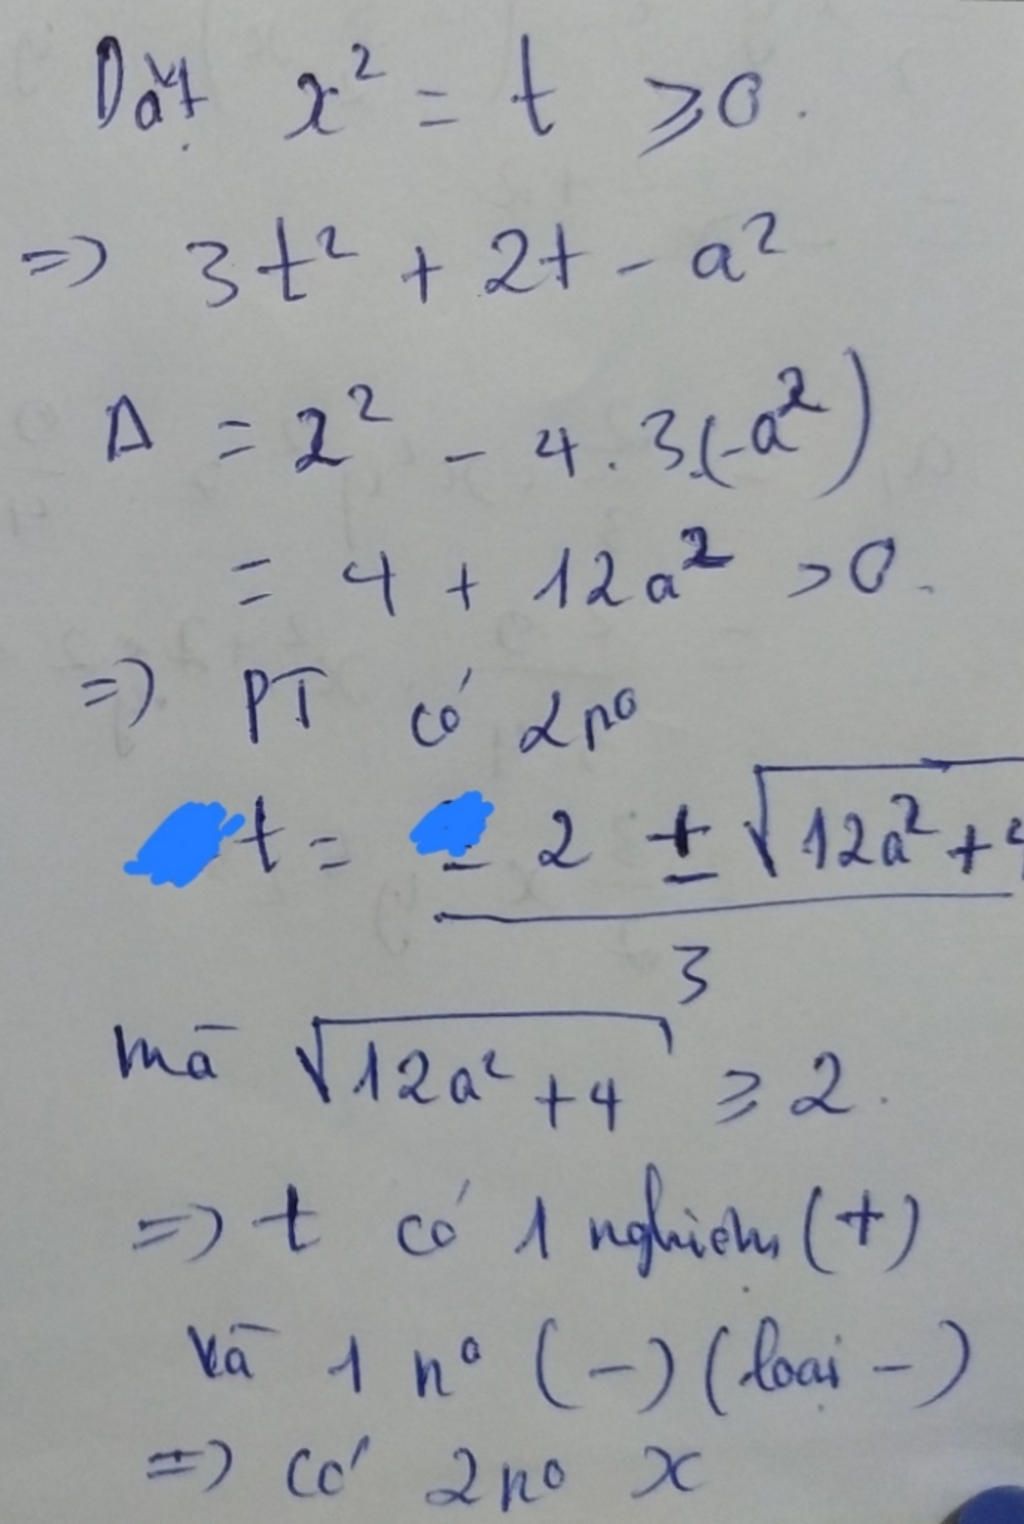 Đặt x² = t ⩾ 0.
=> 3t² + 2t - a²
Δ = 2² - 4.3.(-a²)
= 4 + 12a² > 0.
=> PT có 2 no
t = - 2 ± √12a² + 4
3
mà √12a² + 4 ⩾ 2.
=> t có 1 nghiệm (+)
và 1 no (-) (loại -)
=> có 2 no x